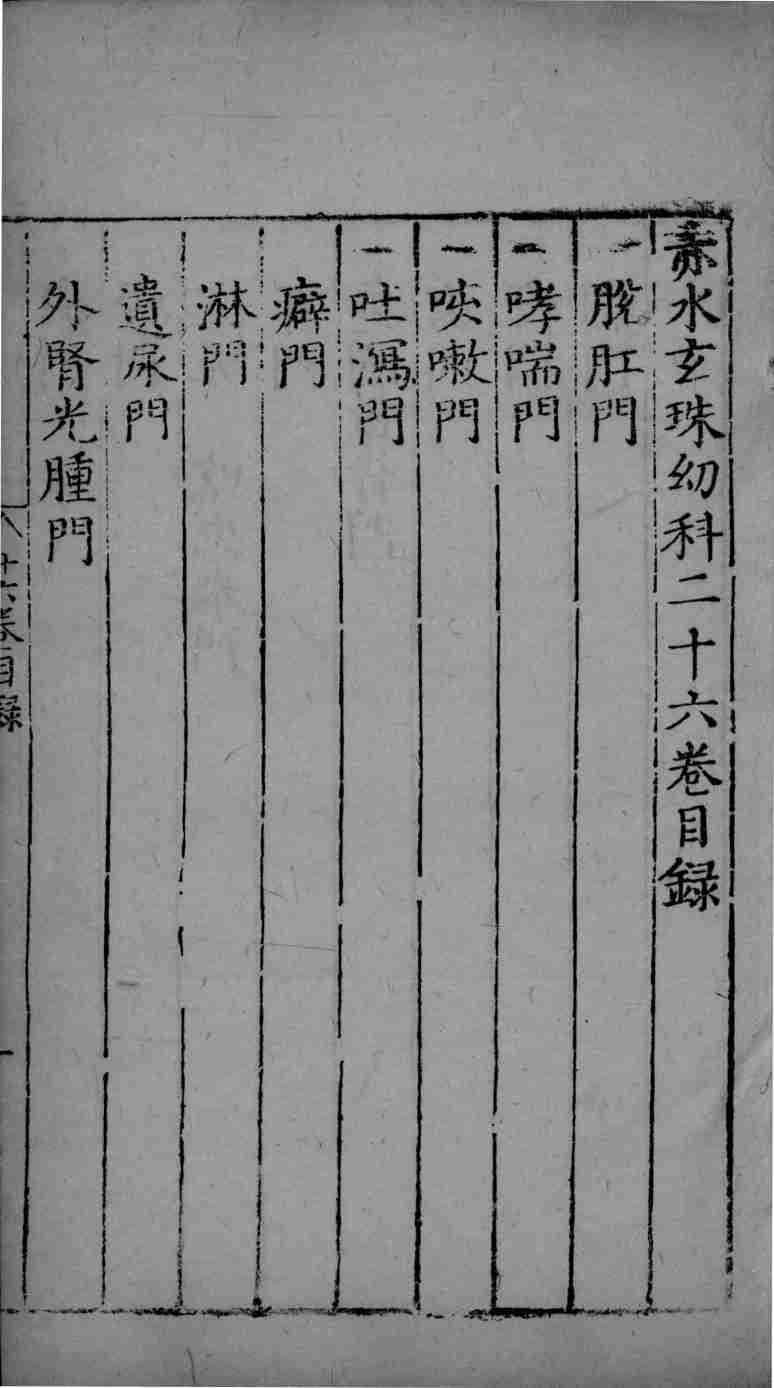 赤水玄珠幼科二十六卷目録
一脫肛門
一哮喘門
一咳嗽門
一吐瀉門
癖門
淋門
遺尿門
外腎光腫門
廿六卷目錄
一